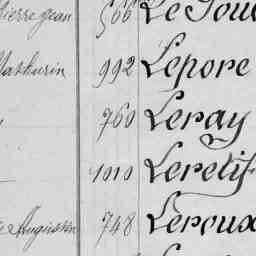 Pierre Jean 566 Le Gou
Mathurin 992 Lepore
760 Leray
1010 Leretif
Augustin 748 Leroux